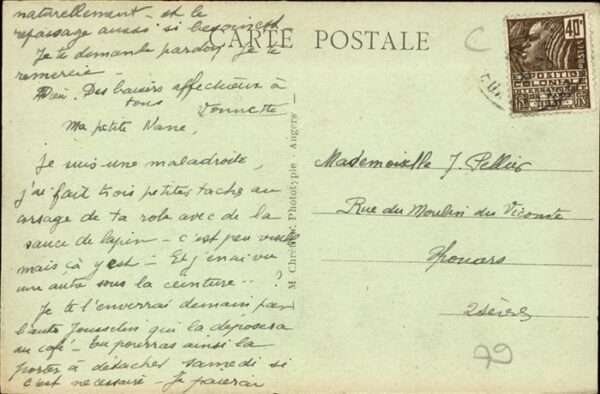 naturellement - et le
repassage aussi si besoin est
Je te demande pardon, je te
remercie -
Des baisers affectueux à
tous Vonnette
Ma petite Nane,
Je suis une maladroite,
j'ai fait trois petites tache au
corsage de ta robe avec de la
sauce de lapin - c'est peu
mais ça y est - Et j'en ai vu
une autre sous la ceinture -- ?
Je te l'enverrai demain par
l'auto Jousselin qui la déposera
au café - tu pourras ainsi la
porter à détacher samedi si
c'est nécessaire - Je paierai
CARTE POSTALE
M. Phototypie - Angers -
40c
EXPOSITION
COLONIALE
INTERNATIONALE
PARIS
1931
Mademoiselle J. Pellier
Rue du Moulin du Vicomte
Thouars
2 Sèvres
C
79